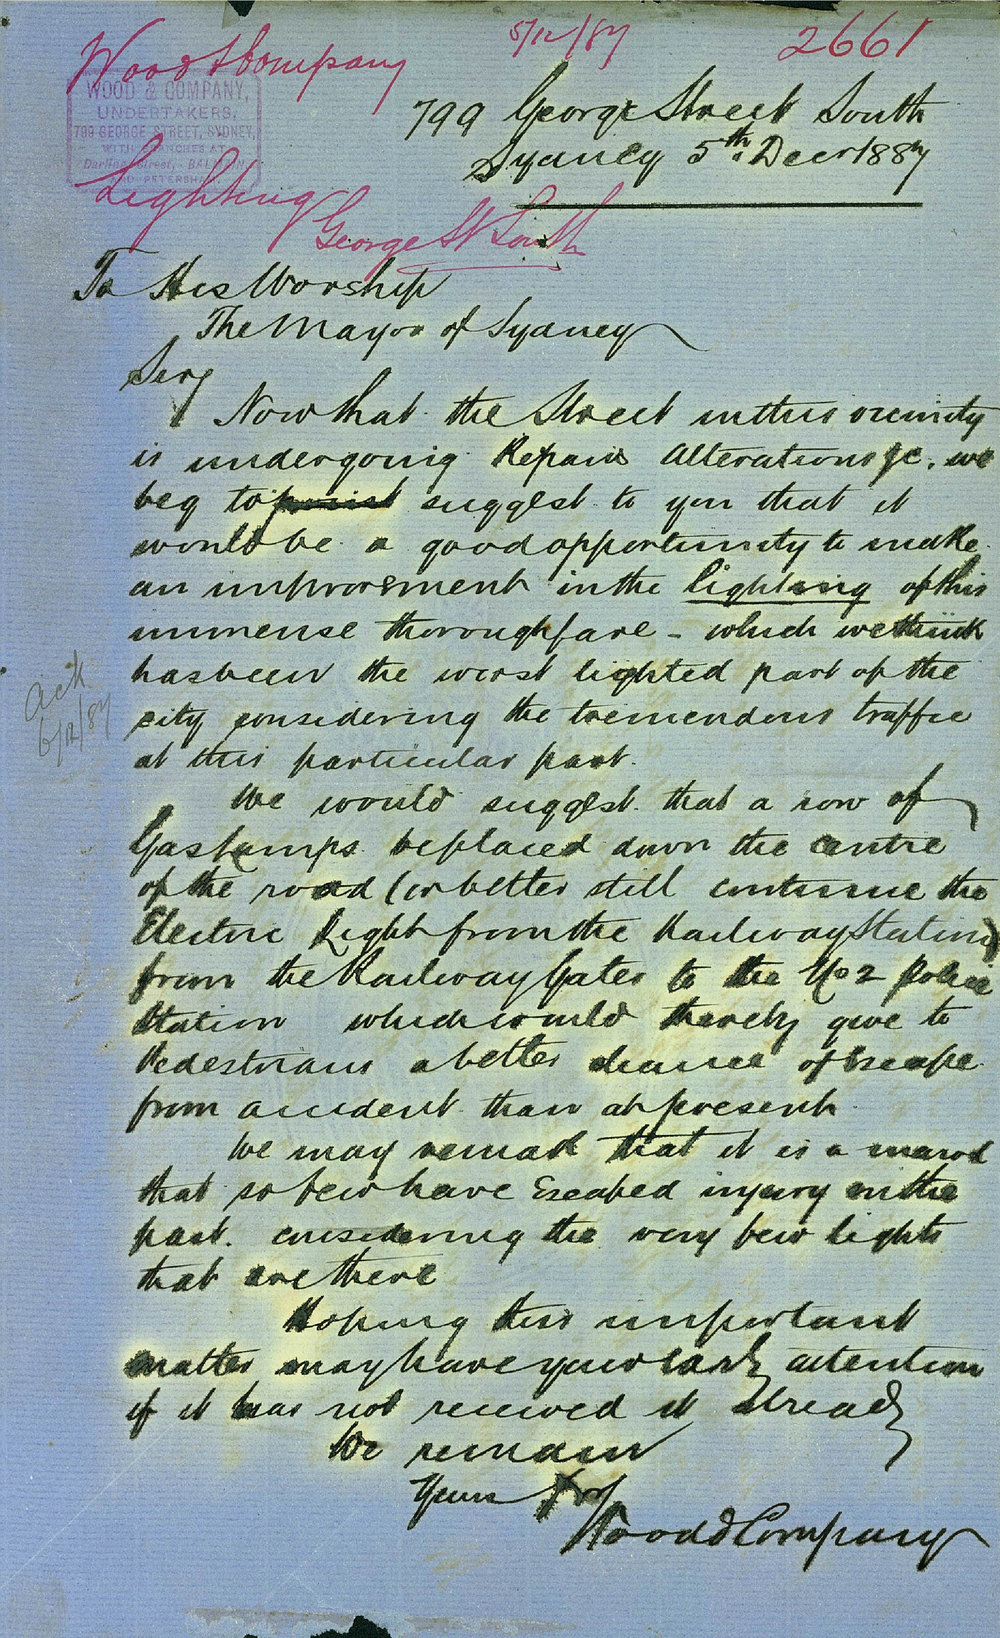 Wood & Company
5/12/87
2661
WOOD & COMPANY,
UNDERTAKERS,
799 GEORGE STREET, SYDNEY,
WITH BRANCHES AT
Darling Street, BALMAIN
AND PETERSHAM
Lighting
George St South
799 George Street South
Sydney 5th Decr 1887
To His Worship
The Mayor of Sydney
Sir,
Now that the Street in this vicinity
is undergoing Repairs Alterations &c, we
beg to suggest to you that it
would be a good opportunity to make
an improvement in the lighting of this
immense thoroughfare - which we think
has been the worst lighted part of the
city considering the tremendous traffic
at this particular part.
Ack
6/12/87
We would suggest that a row of
Gas Lamps be placed down the centre
of the road (or better still continue the
Electric Light from the Railway Station)
from the Railway Gates to the No 2 Police
Station which would thereby give to
Pedestrians a better chance of Escape
from accident than at present.
We may remark that it is a
that so few have Escaped injury in the
past. considering the very few lights
that are there
Hoping this important
matter may have your early attention
if it has not received it already
We remain
Yours
Wood & Company